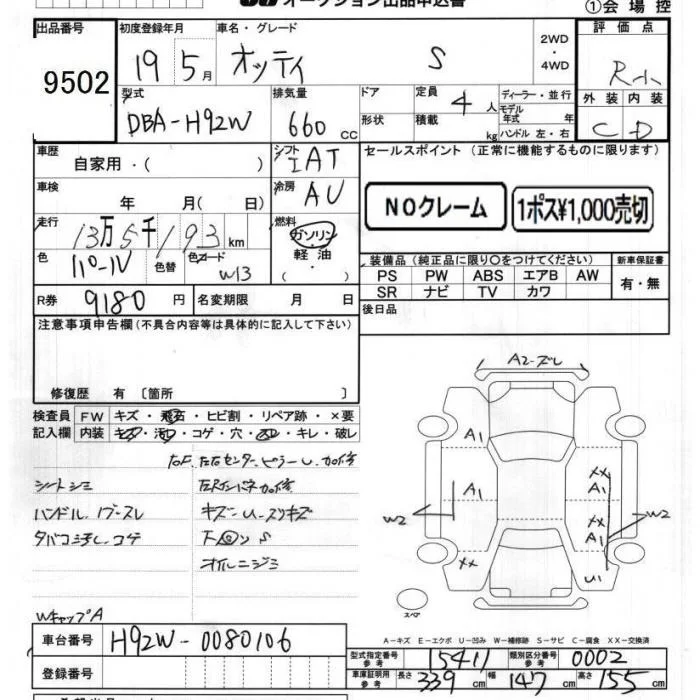 オークション出品申込書
①会場控
出品番号 9502
初度登録年月 19 5月
車名・グレード オッティ S
2WD・4WD
評価点 R小
外装 内装
C D
型式 DBA-H92W
排気量 660cc
ドア 形状
定員 4人
積載 kg
ディーラー・並行
モデル年式 年
ハンドル 左・右
車歴 自家用・( )
シフト IAT
セールスポイント (正常に機能するものに限ります)
車検 年 月( 日)
冷房 AU
NOクレーム
1ポス¥1,000売切
走行 13万5千193km
燃料 ガソリン・軽油・( )
色 パール 色替 色コード W13
装備品(純正品に限り○をつけてください)
新車保証書
PS PW ABS エアB AW
有・無
SR ナビ TV カワ
R券 9180円
名変期限 月 日
後日品
注意事項申告欄(不具合内容等は具体的に記入して下さい)
修復歴 有 〔箇所 〕
検査員記入欄
FW キズ・飛石・ヒビ割・リペア跡・×要
内装 キズ・汚れ・コゲ・穴・スレ・キレ・破レ
シートシミ
ハンドル.ノブスレ
タバコ汚レ.コゲ
キズ-U-スリキズ
オイルニジミ
WキャップA
A2-ズレ
A1
A1
XX
W2
XX
A1
XX
A1
U1
W2
スペア
A-キズ E-エクボ U-凹み W-補修跡 S-サビ C-腐食 XX-交換済
車台番号 H92W-0080106
型式指定番号 参考 15411
類別区分番号 参考 0002
登録番号
車庫証明用 参考 長さ 339cm 幅 147cm 高さ 155cm